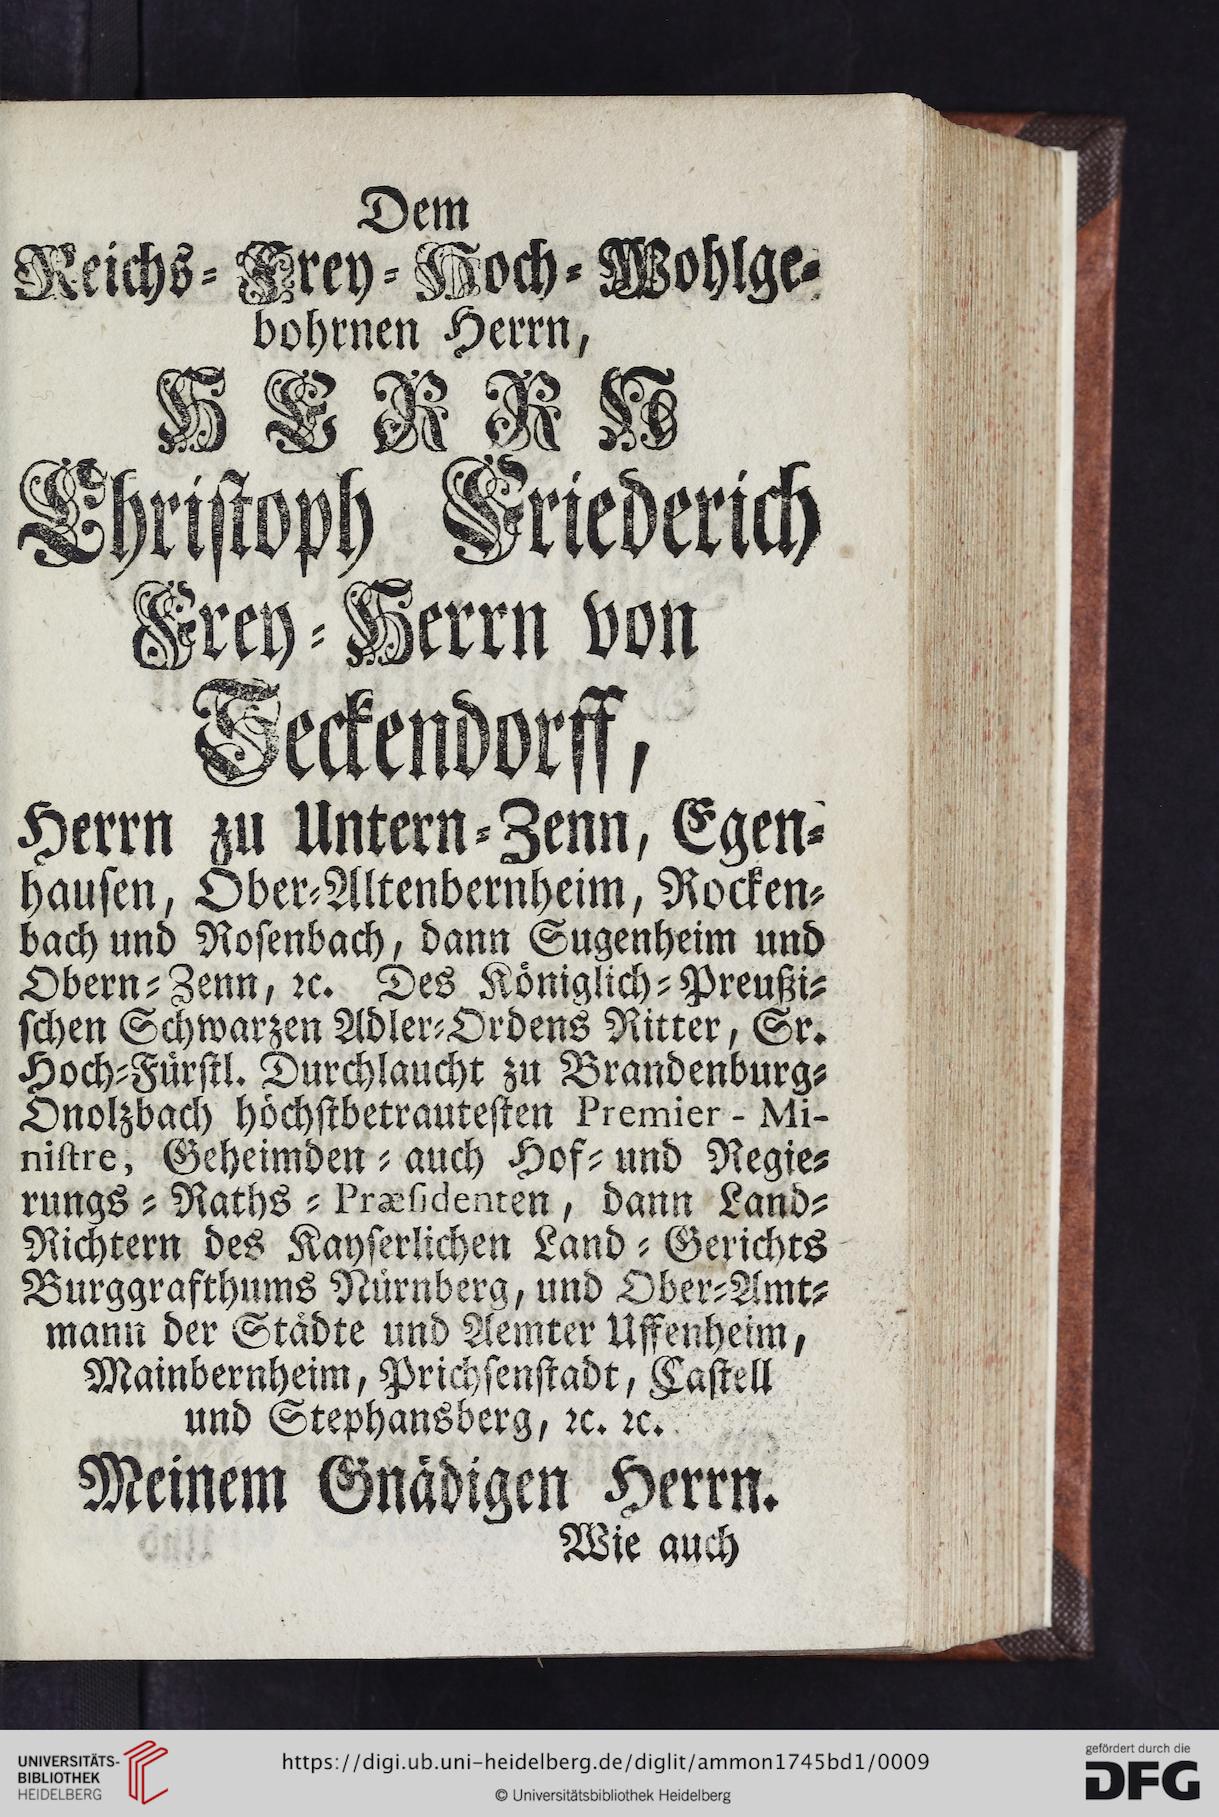 Dem
Reichs-Frey-Hoch-Wohlge-
bohrnen Herrn,
HERRN
Christoph Friederich
Frey-Herrn von
Seckendorff,
Herrn zu Untern-Zenn, Egen-
hausen, Ober-Altenbernheim, Rocken-
bach und Rosenbach, dann Sugenheim und
Obern-Zenn, ꝛc. Des Königlich-Preußi-
schen Schwarzen Adler-Ordens Ritter, Sr.
Hoch-Fürstl. Durchlaucht zu Brandenburg-
Onolzbach höchstbetrautesten Premier-Mi-
nistre, Geheimden-auch Hof-und Regie-
rungs-Raths-Præsidenten, dann Land-
Richtern des Kayserlichen Land-Gerichts
Burggrafthums Nürnberg, und Ober-Amt-
mann der Städte und Aemter Uffenheim,
Mainbernheim, Prichsenstadt, Castell
und Stephansberg, ꝛc. ꝛc.
Meinem Gnädigen Herrn.
Wie auch
UNIVERSITÄTS-
BIBLIOTHEK
HEIDELBERG
https://digi.ub.uni-heidelberg.de/diglit/ammon1745bd1/0009
© Universitätsbibliothek Heidelberg
gefördert durch die
DFG